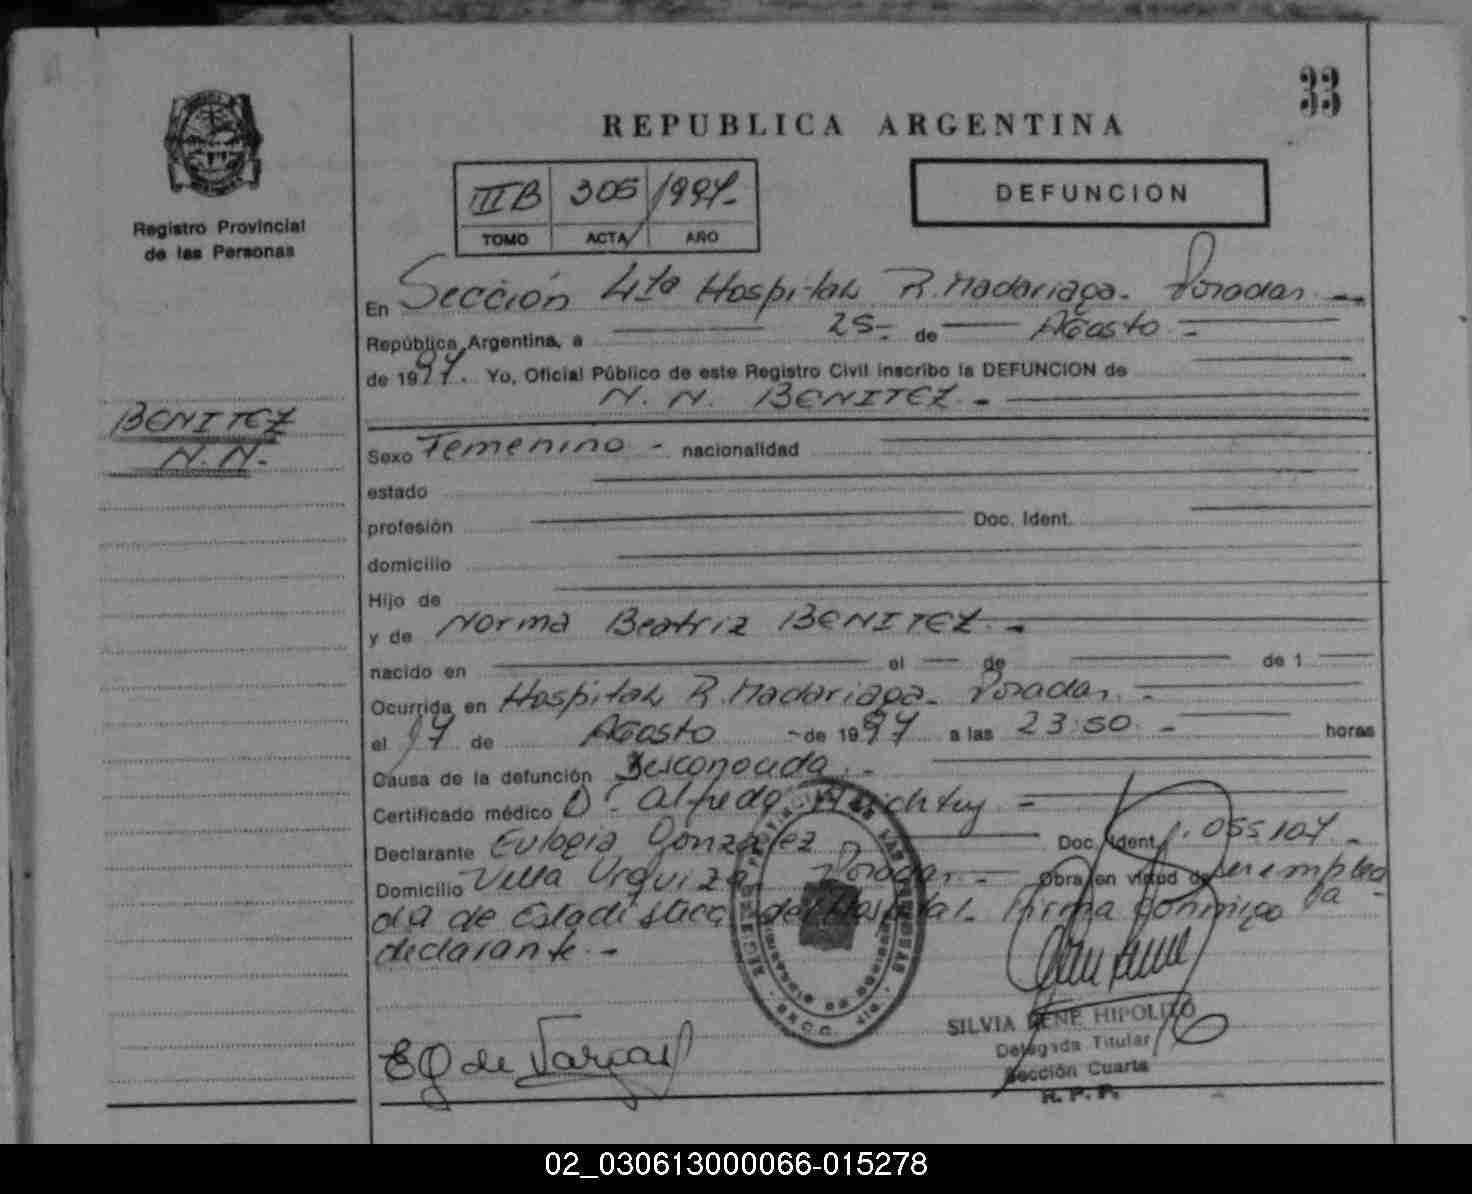 33
REPUBLICA ARGENTINA
Registro Provincial
de las Personas
IIIB 305 1997-
TOMO ACTA AÑO
DEFUNCION
En Sección 4ta Hospital R. Madariaga. Posadas
República Argentina, a 25- de Agosto -
de 1997. Yo, Oficial Público de este Registro Civil inscribo la DEFUNCION de
N. N. BENITEZ. -
BENITEZ
N. N.-
Sexo Femenino - nacionalidad
estado
profesión Doc. Ident.
domicilio
Hijo de
y de Norma Beatriz BENITEZ. -
nacido en el de de 1
Ocurrida en Hospital R. Madariaga. Posadas. -
el 17 de Agosto - de 1997 a las 23:50. - horas
Causa de la defunción Desconocida. -
Certificado médico Dr. Alfredo
Declarante Eulogia Gonzalez Doc. Ident. 055107 -
Domicilio Villa Urquiza Posadas - Obra en virtud de ser emplea
da de Estadistica del Hospital. Firma conmigo la
declarante. -
E G de Vargas
SILVIA RENE HIPOLITO
Delegada Titular
Sección Cuarta
R. P. P.
02_030613000066-015278